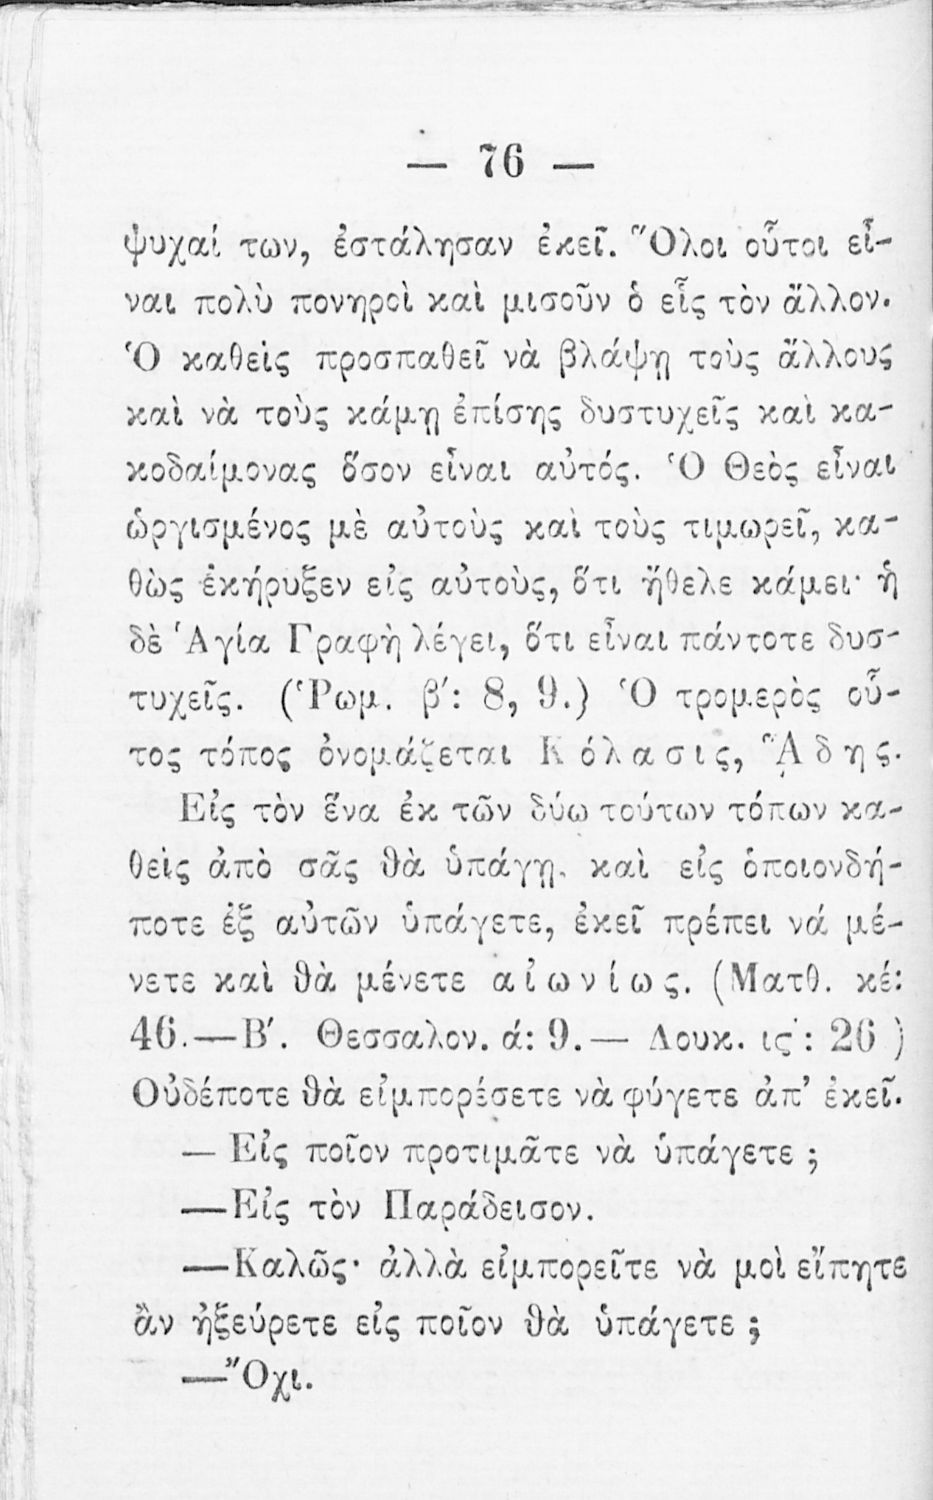 — 76 —
ψυχαί των, ἐστάλησαν ἐκεῖ. Ὅλοι οὗτοι εἶ-
ναι πολὺ πονηροὶ καὶ μισοῦν ὁ εἷς τὸν ἄλλον.
Ὁ καθεὶς προσπαθεῖ νὰ βλάψῃ τοὺς ἄλλους
καὶ νὰ τοὺς κάμῃ ἐπίσης δυστυχεῖς καὶ κα-
κοδαίμονας ὅσον εἶναι αὐτός. Ὁ Θεὸς εἶναι
ὠργισμένος μὲ αὐτοὺς καὶ τοὺς τιμωρεῖ, κα-
θὼς ἐκήρυξεν εἰς αὐτοὺς, ὅτι ἤθελε κάμει· ἡ
δὲ Ἁγία Γραφὴ λέγει, ὅτι εἶναι πάντοτε δυσ-
τυχεῖς. (Ῥωμ. β´: 8, 9.) Ὁ τρομερὸς οὗ-
τος τόπος ὀνομάζεται Κόλασις, ᾍδης.
Εἰς τὸν ἕνα ἐκ τῶν δύω τούτων τόπων κα-
θεὶς ἀπὸ σᾶς θὰ ὑπάγῃ. καὶ εἰς ὁποιονδή-
ποτε ἐξ αὐτῶν ὑπάγετε, ἐκεῖ πρέπει νά μέ-
νετε καὶ θὰ μένετε αἰωνίως. (Ματθ. κέ:
46.—Β´. Θεσσαλον. ά: 9.— Λουκ. ις´: 26 )
Οὐδέποτε θὰ εἰμπορέσετε νὰ φύγετε ἀπ’ ἐκεῖ.
— Εἰς ποῖον προτιμᾶτε νὰ ὑπάγετε ;
—Εἰς τὸν Παράδεισον.
—Καλῶς· ἀλλὰ εἰμπορεῖτε νὰ μοὶ εἴπητε
ἂν ἠξεύρετε εἰς ποῖον θὰ ὑπάγετε ;
—Ὄχι.